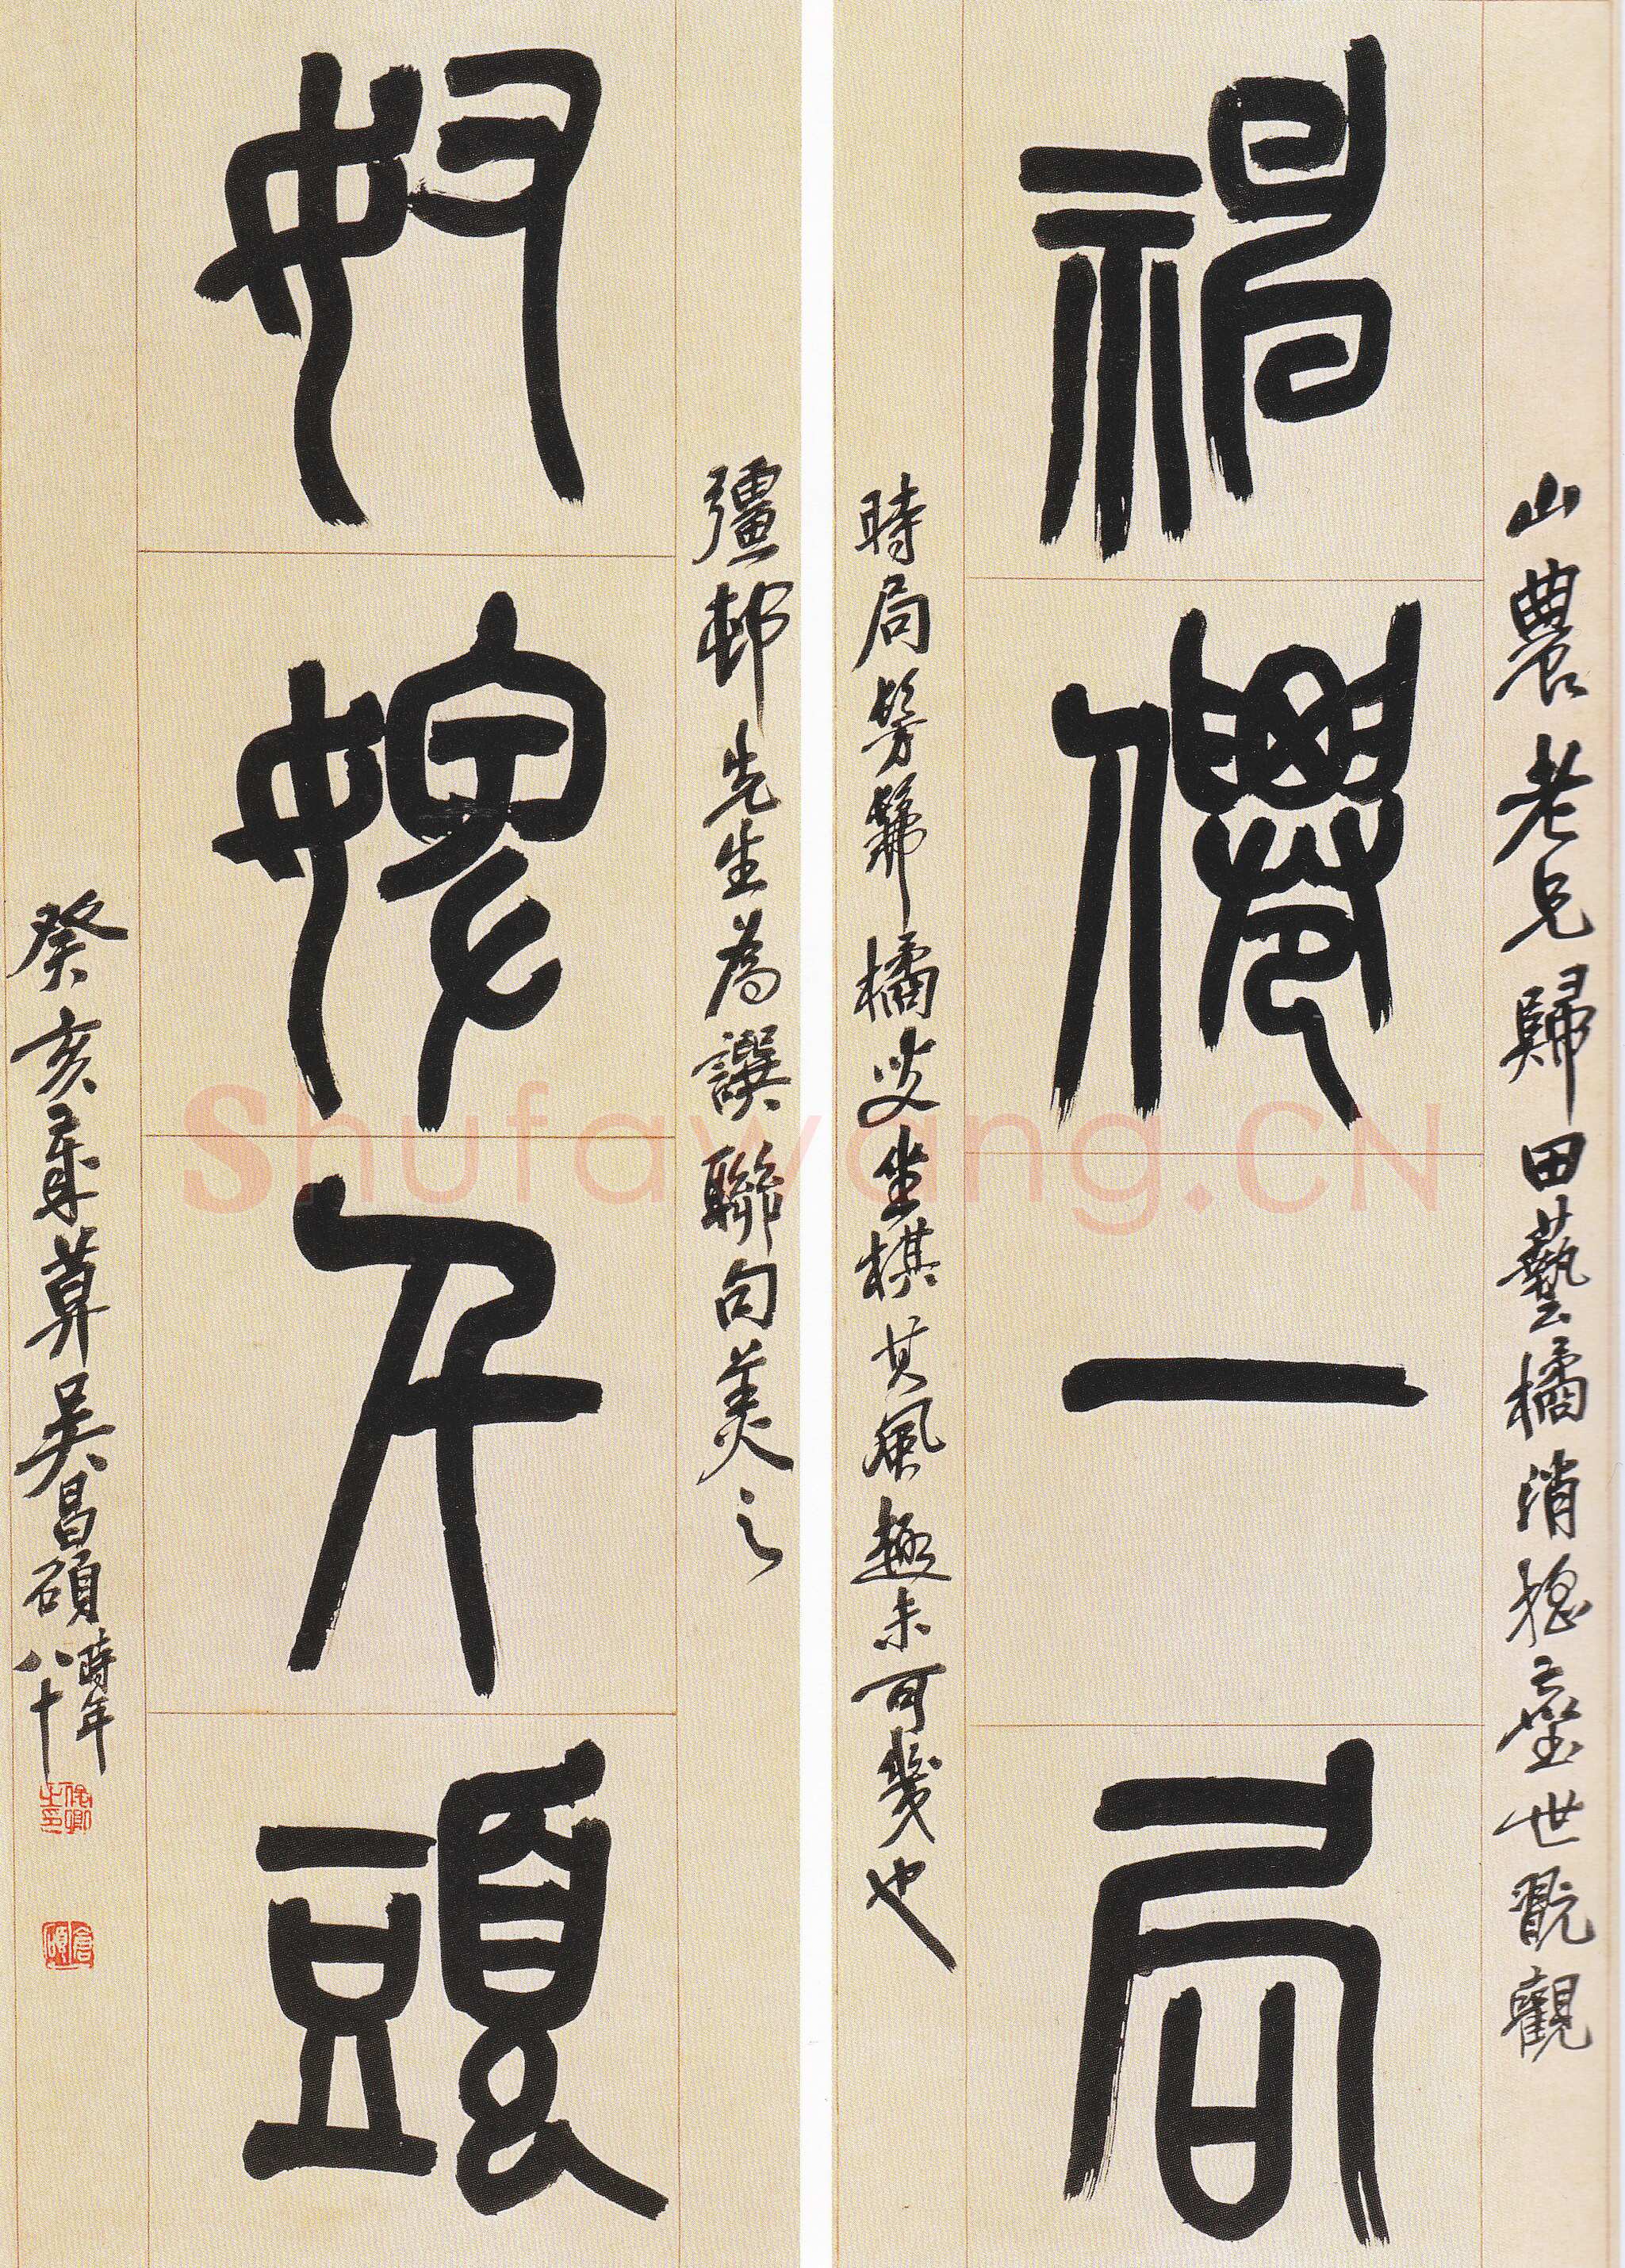 山農老兄歸田藝橘消搖塵世翫觀
神僊一局
時局髣髴橘叟坐棋其風趣未可幾也
彊邨先生為譔聯句美之
奴嫁千頭
癸亥歲莫吳昌碩時年八十
俊卿之印
倉碩
Shufawang.CN